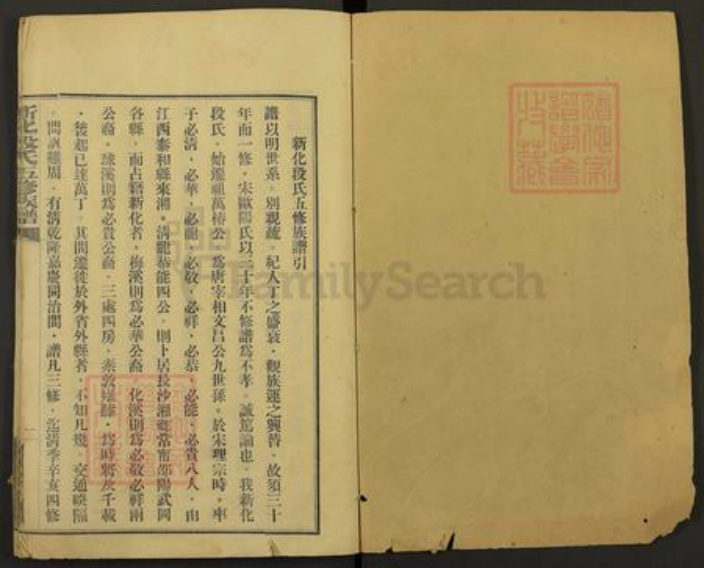 新化段氏五修族譜引
譜以明世系。別親疏。紀人丁之盛衰。觀族運之興替。故須三十
年而一修。宋歐陽氏以三十年不修譜爲不孝。誠篤論也。我新化
段氏。始遷祖萬椿公。爲唐宰相文昌公九世孫。於宋理宗時。率
子必清。必華。必龍。必敬。必祥。必恭。必能。必貴八人。由
江西泰和縣來湘。清龍恭能四公。則卜居長沙湘鄉常甯邵陽武岡
各縣。而占籍新化者。梅溪則爲必華公裔。化溪則爲必敬必祥兩
公裔。球溪則爲必貴公裔。三處四房。素敦。爲時將次千載
。後起已達萬丁。其間遷徙於外省外縣者。不知凡幾。交通暌隔
。問訊難周。有清乾隆嘉慶同治間。譜凡三修。迄清季辛亥四修
新化段氏五修族譜
FamilySearch